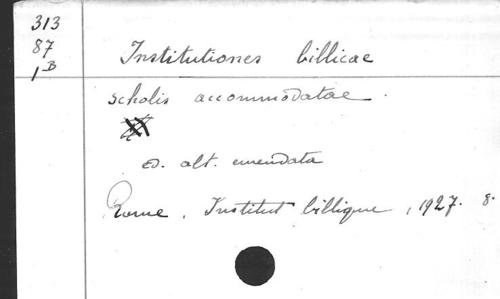 313
87
1B
Institutiones biblicae
scholis accommodatae.
ed. alt. emendata
Rome, Institut biblique, 1927. 8.